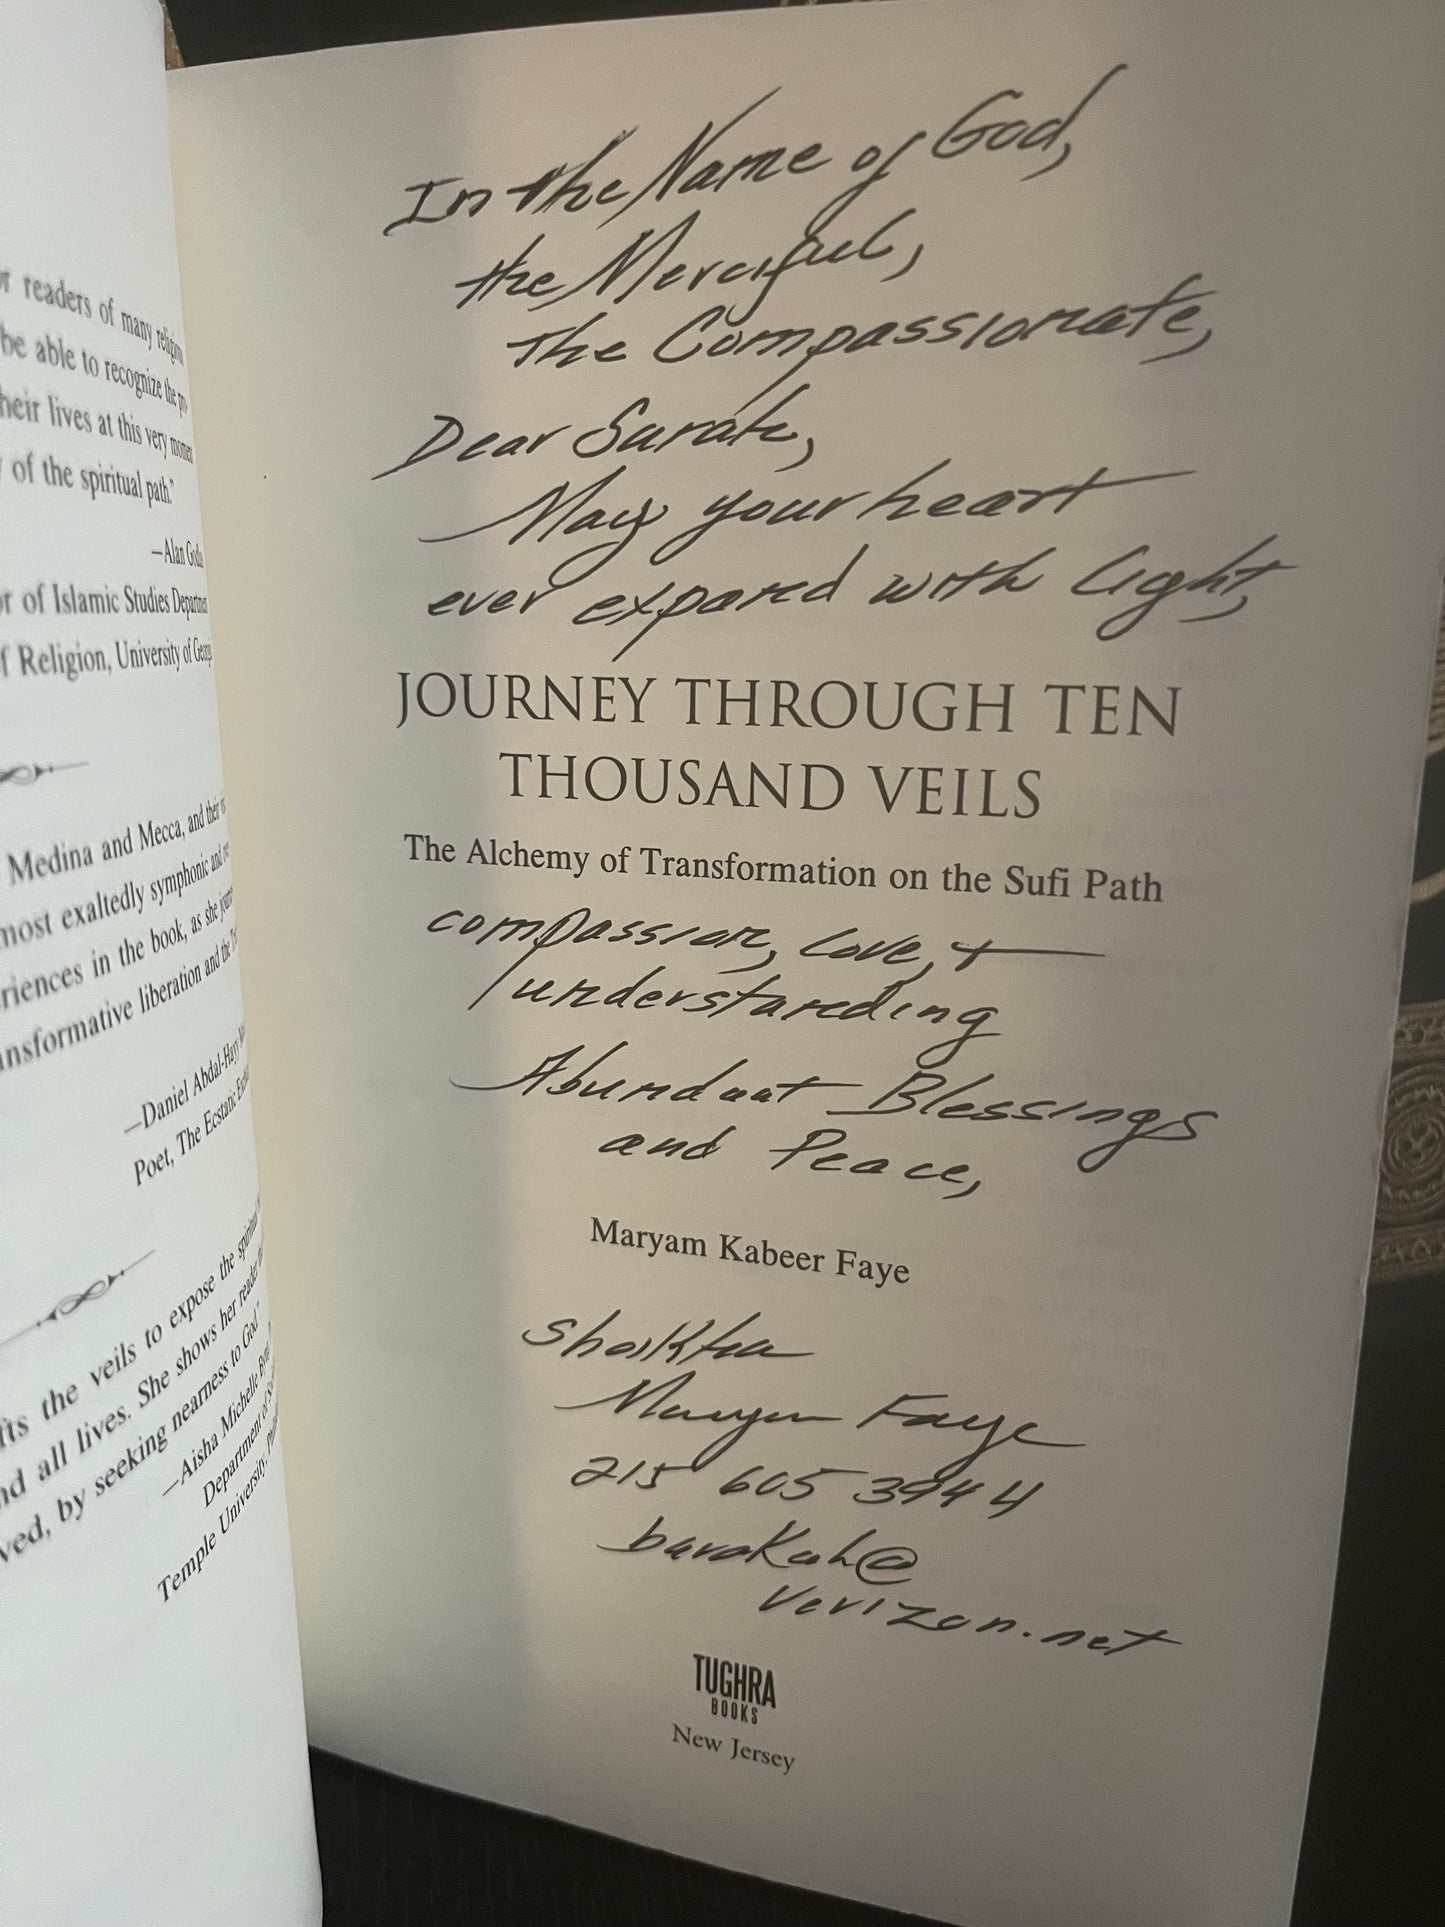 r readers of many religions
be able to recognize the
heir lives at this very moment
of the spiritual path."
—Alan
r of Islamic Studies
f Religion, University of
Medina and Mecca, and their
most exaltedly symphonic and
riences in the book, as she
nsformative liberation and the
—Daniel Abdal-Hayy
Poet, The Ecstatic
fts the veils to expose the spiritual
nd all lives. She shows her reader
ved, by seeking nearness to God."
—Aisha Michelle
Department of
Temple University,
In the Name of God,
the Merciful,
The Compassionate,
Dear Sarah,
May your heart
ever expand with light,
JOURNEY THROUGH TEN
THOUSAND VEILS
The Alchemy of Transformation on the Sufi Path
compassion, love, +
understanding
Abundant Blessings
and Peace,
Maryam Kabeer Faye
Shaikha
Maryam Faye
215 605 3944
barakah@
verizon.net
TUGHRA
BOOKS
New Jersey